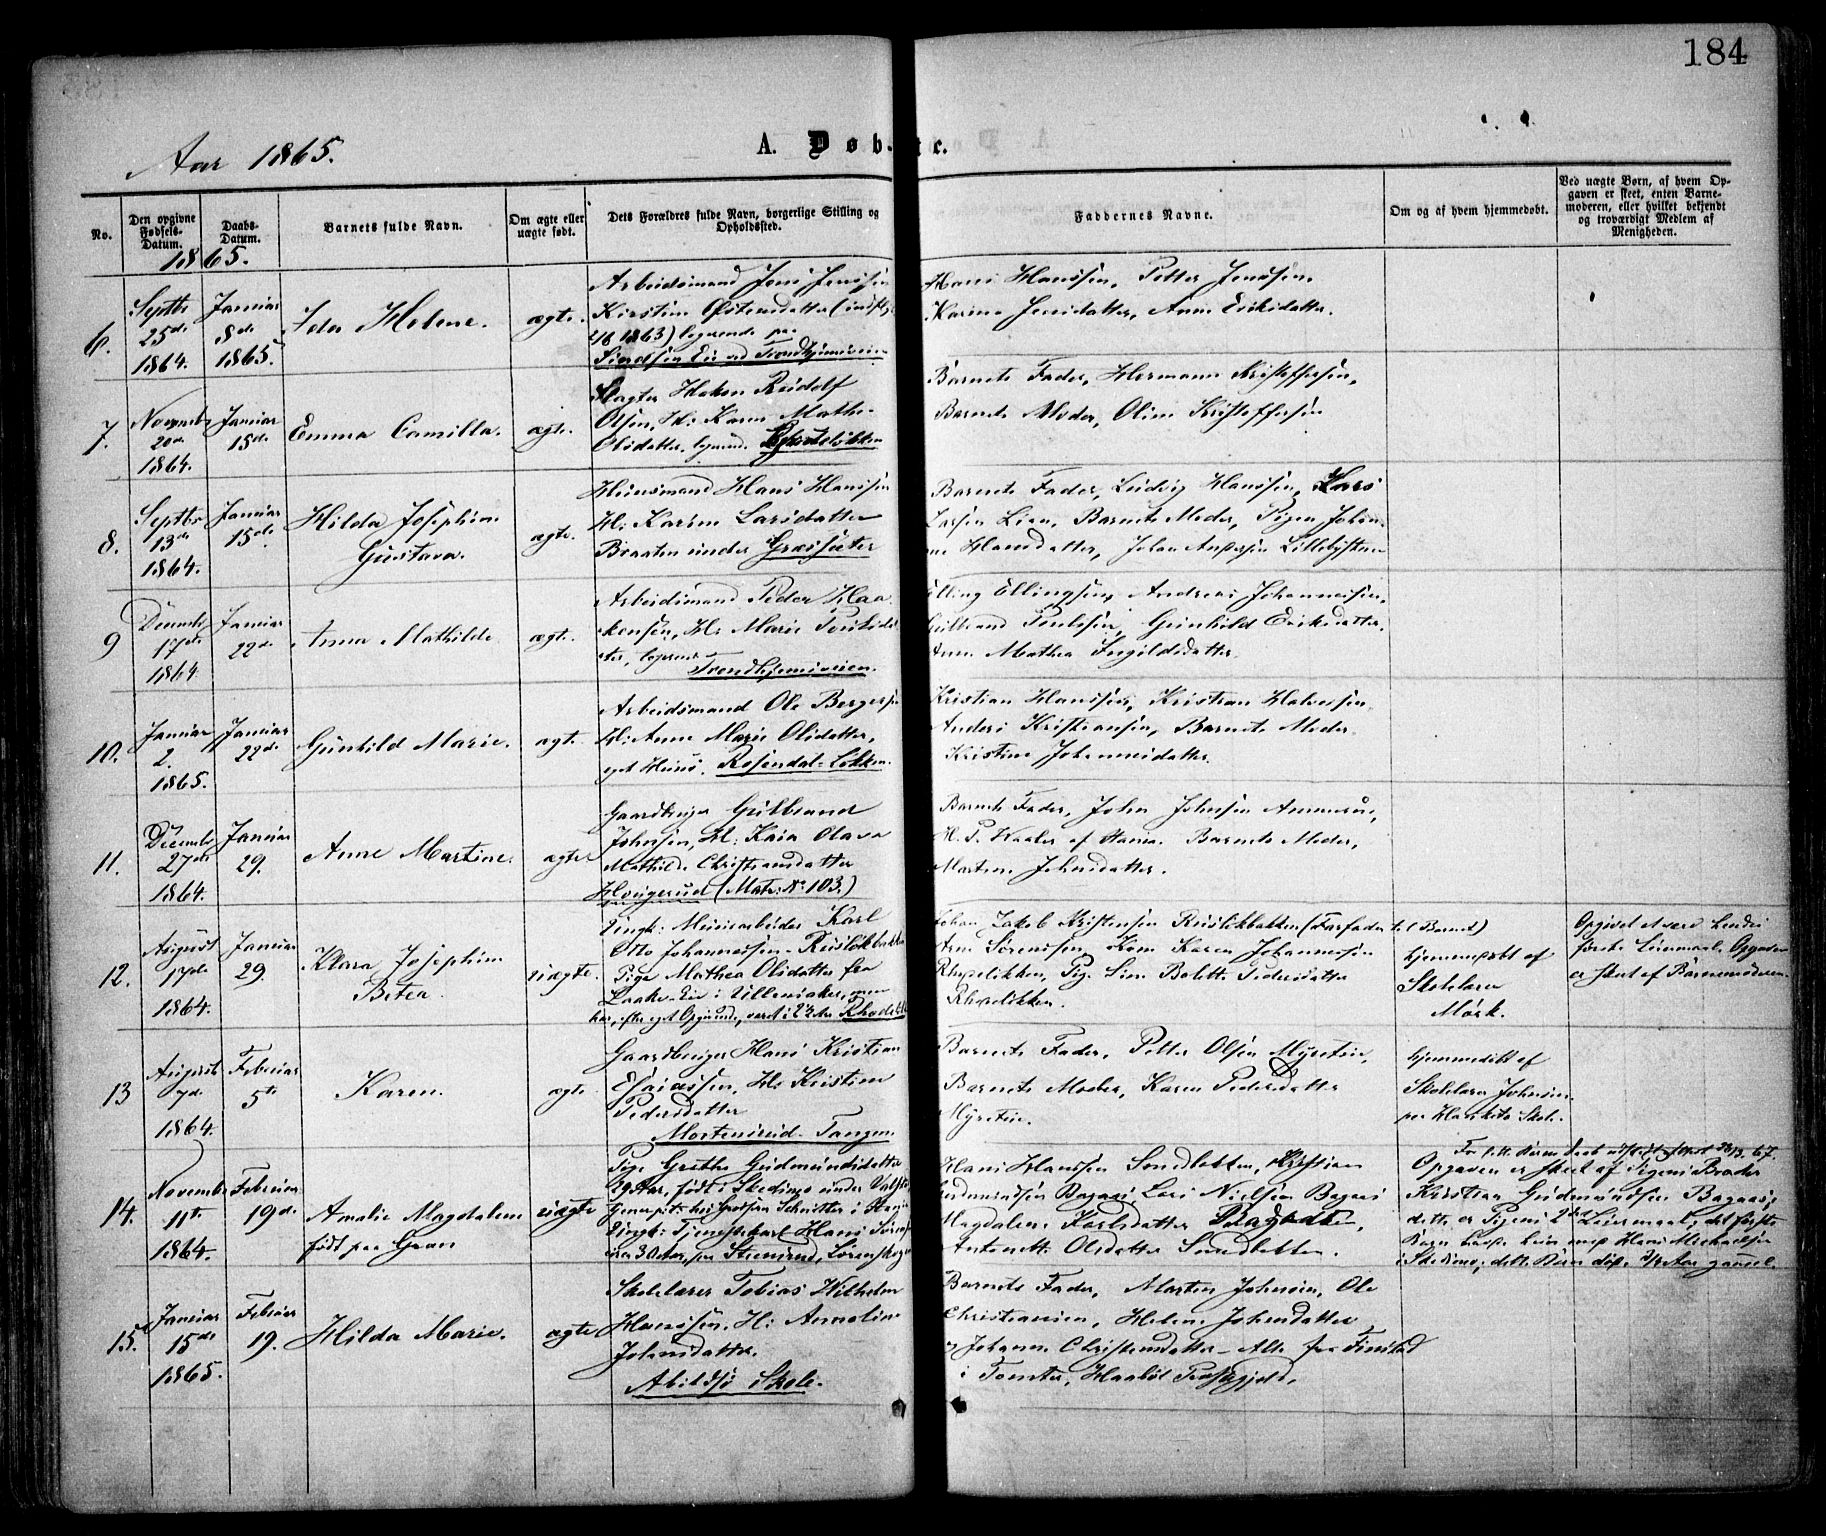 184
Aar 1865.
A. Døbte.
No.
Den opgivne Fødsels-Datum.
Daabs-Datum.
Barnets fulde Navn.
Om ægte eller uægte født.
Dets Forældres fulde Navn, borgerlige Stilling og Opholdssted.
Faddernes Navne.
Om og af hvem hjemmedøbt.
Ved uægte Børn, af hvem Opgaven er skeet, enten Barnemoderen, eller hvilket bekjendt og troværdigt Medlem af Menigheden.
1865.
6.
Septbr
25de
1864.
Januar
8de
1865.
Ida Helene.
ægte.
Arbeidsmand Jens Jenssen
Kirstine Østensdatter (
1863) logerende paa
Eie ved Trondhjemsveien
Hans Hanssen, Petter Jenssen
Karine Jensdatter, Anne Eriksdatter.
7.
Novembr
20de
1864.
Januar
15de
Emma Camilla.
ægte.
Slagter Hakon Rudolf
Olsen, H: Karen Mathe
Olsdatter, logerend.
Barnets Fader, Hermann Kristoffersen,
Barnets Moder, Oline Kristoffersen
8.
Septbr
13de
1864.
Januar
15de
Hilda Josephine
Gustava.
ægte.
Huusmand Hans Hanssen
H: Karen Larsdatter
Braaten under Græsseter
Barnets Fader, Ludvig Hanssen, Lars
Larsen Lien, Barnets Moder, Pigen Johan-
ne Hansdatter, Johan Andersen
9
Decembr
17de
1864
Januar
22de
Anna Mathilde
ægte.
Arbeidsmand Peder Haa-
kensen, H: Marie
ter, logerend
Trondhjemsveien.
Elling Ellingsen, Andreas Johannessen,
Gulbrand Paulssen, Gunhild Eriksdatter,
Anne Mathea Ingildsdatter.
10.
Januar
2.
1865.
Januar
22de
Gunhild Marie.
ægte.
Arbeidsmand Ole Bergersen
H: Anne Marie Olsdatter,
eget Huus. Rosendal-Løkken.
Kristian Hanssen, Kristian Halvorsen,
Anders Kristiansen, Barnets Moder.
Kristine Johannesdatter.
11.
Decembr
27de
1864.
Januar
29.
Anne Martine.
ægte
Gaardbruger Gulbrand
Johnsen, H: Kaia Olava
Mathilde Christiansdatter
Haugerud (Matr: No 103.)
Barnets Fader, John Johnsen Ammerud,
Barnets Moder,
Martine Johnsdatter.
12.
August
17de
1864.
Januar
29.
Klara Josephine
Betea.
uægte.
Ungk: Muurarbeider Karl
Otto Johannessen Ruseløkbakken
Pige Mathea Olsdatter fra
Eie i Ullensaker, men
har, efter eget Opgivende, været i 2½ Aar
Johan Jakob Kristensen Ruseløkbakken (Farfader til Barnet)
Arne Sørenssen, Kone Karen Johannessen
Pige Sine Bolett Pedersdatter
hjemmedøbt af
Skolelærer
Mørk.
Opgivet at være begges
første Leiermaal. Opgaven
er skeet af Barnemoderen.
13
August
7de
1864.
Februar
5te
Karen.
ægte.
Gaardbruger Hans Kristian
Esaiassen, H: Kristine
Pedersdatter
Mortensrud-Tangen.
Barnets Fader, Petter Olsen Myretvie,
Barnets Moder, Karen Pedersdatter
hjemmedøbt af
Skolelærer Johnsen
paa Skole.
14.
November
11te
1864.
Februar
19de
Amalie Magdalene
født paa Grau
uægte
Pige Grethe Gudmundsdatter
29 Aar, født i Skedsmo under
Ungk: Tjenestekarl Hans
Lørenskog
Hans Hanssen Sandbakken, Kristian
Gudmundsen Bagaas, Lars Nielsen Bagaas
Magdalene Karlsdatter Bagaas,
Antonett Olsdatter Sandbakken.
Opgaven er skeet af Pigens Broder
Kristian Gudmundsen Bagaas,
dette er Pigens 2det Leiermaal, det første
Barn havde hun med Hans Michaelsen
i Skedsmo; dette Barn døde ½ Aar gammel.
15.
Januar
15de
1865.
Februar
19.
Hilda Marie.
ægte
Skolelærer Tobias Wilhelm
Hanssen. H: Annaline
Johnsdatter.
Abildsø Skole.
Barnets Fader, Marten Johnsen, Ole
Christiansen, Helene Johnsdatter
og Johanne Christensdatter - Alle fra Finstad
i Tomter, Haabøl Præstegjeld.